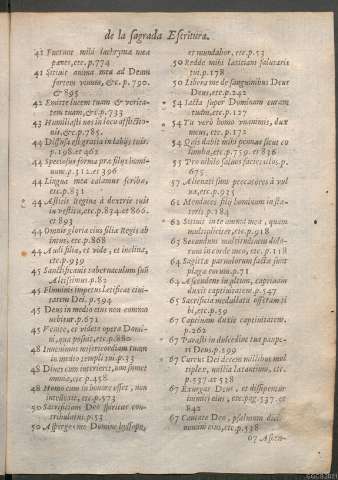 de la sagrada Escritura.
41 Fuerunt mihi lachrymæ meæ
panes, etc. p.774
41 Sitiuit anima mea ad Deum
fortem viuum, &c. p. 790.
& 895
42 Emitte lucem tuam & verita-
tem tuam, &c. p.733
43 Humiliasti nos in loco afflictio-
nis, &c. p.785.
44 Diffusa est gratia in labijs tuis.
p.198. et 461
44 Speciosus forma præ filijs homi-
num. p.312. et 396
44 Lingua mea calamus scribæ,
etc. p.831
44 Astitit Regina à dextris tuis
in vestitu, etc. p.874. et 866.
et 893
44 Omnis gloria eius filiæ Regis ab
intus, etc. p.868
44 Audi filia, et vide, et inclina,
etc. p.939
45 Sanctificauit tabernaculum suũ
Altissimus. p.82
45 Fluminis impetus lætificat ciui-
tatem Dei. p.594
45 Deus in medio eius non commo
uebitur. p.671
45 Venite, et videte opera Domi-
ni, quæ posuit, etc. p.880
48 Inuenimus misericordiam tuam
in medio templi tui. p.33
48 Diues cum interierit, non sumet
omnia, etc. p.458
48 Homo cum in honore esset, non
intellexit, etc. p.573
50 Sacrificium Deo spiritus con-
tribulatus. p.53
50 Asperges me Domine hyssopo,
et mundabor, etc. p.53
50 Redde mihi lætitiam salutaris
tui. p.178
50 Libera me de sanguinibus Deus
Deus, etc. p.242
54 Iacta super Dominum curam
tuam, etc. p.127
54 Tu verò homo vnanimis, dux
meus, etc. p.172
54 Quis dabit mihi pennas sicut co
lumbæ, etc. p.759. et 836
55 Pro nihilo saluos facies illos. p.
675
57 Alienati sunt peccatores à vul
ua, etc. p.925
61 Mendaces filij hominum in sta-
teris. p.184
62 Sitiuit in te anima mea, quam
multipliciter, etc. p.918
63 Secundum multitudinem dolo-
rum in corde meo, etc. p.118
64 Sagittæ paruulorum factæ sunt
plagæ eorum. p.71
64 Ascendens in altum, captiuam
duxit captiuitatem. p.547
65 Sacrificia medullata offeram ti-
bi, etc. p.59
67 Captiuam duxit captiuitatem.
p.262
67 Parasti in dulcedine tua paupe-
ri Deus. p.599
67 Currus Dei decem millibus mul
tiplex, millia lætantium, etc.
p.537 et 538
67 Exurgat Deus, et dissipentur
inimici eius, etc. pag.537. et
842
67 Cantate Deo, psalmum dici-
te nomini eius, etc. p.538
67 Ascen-